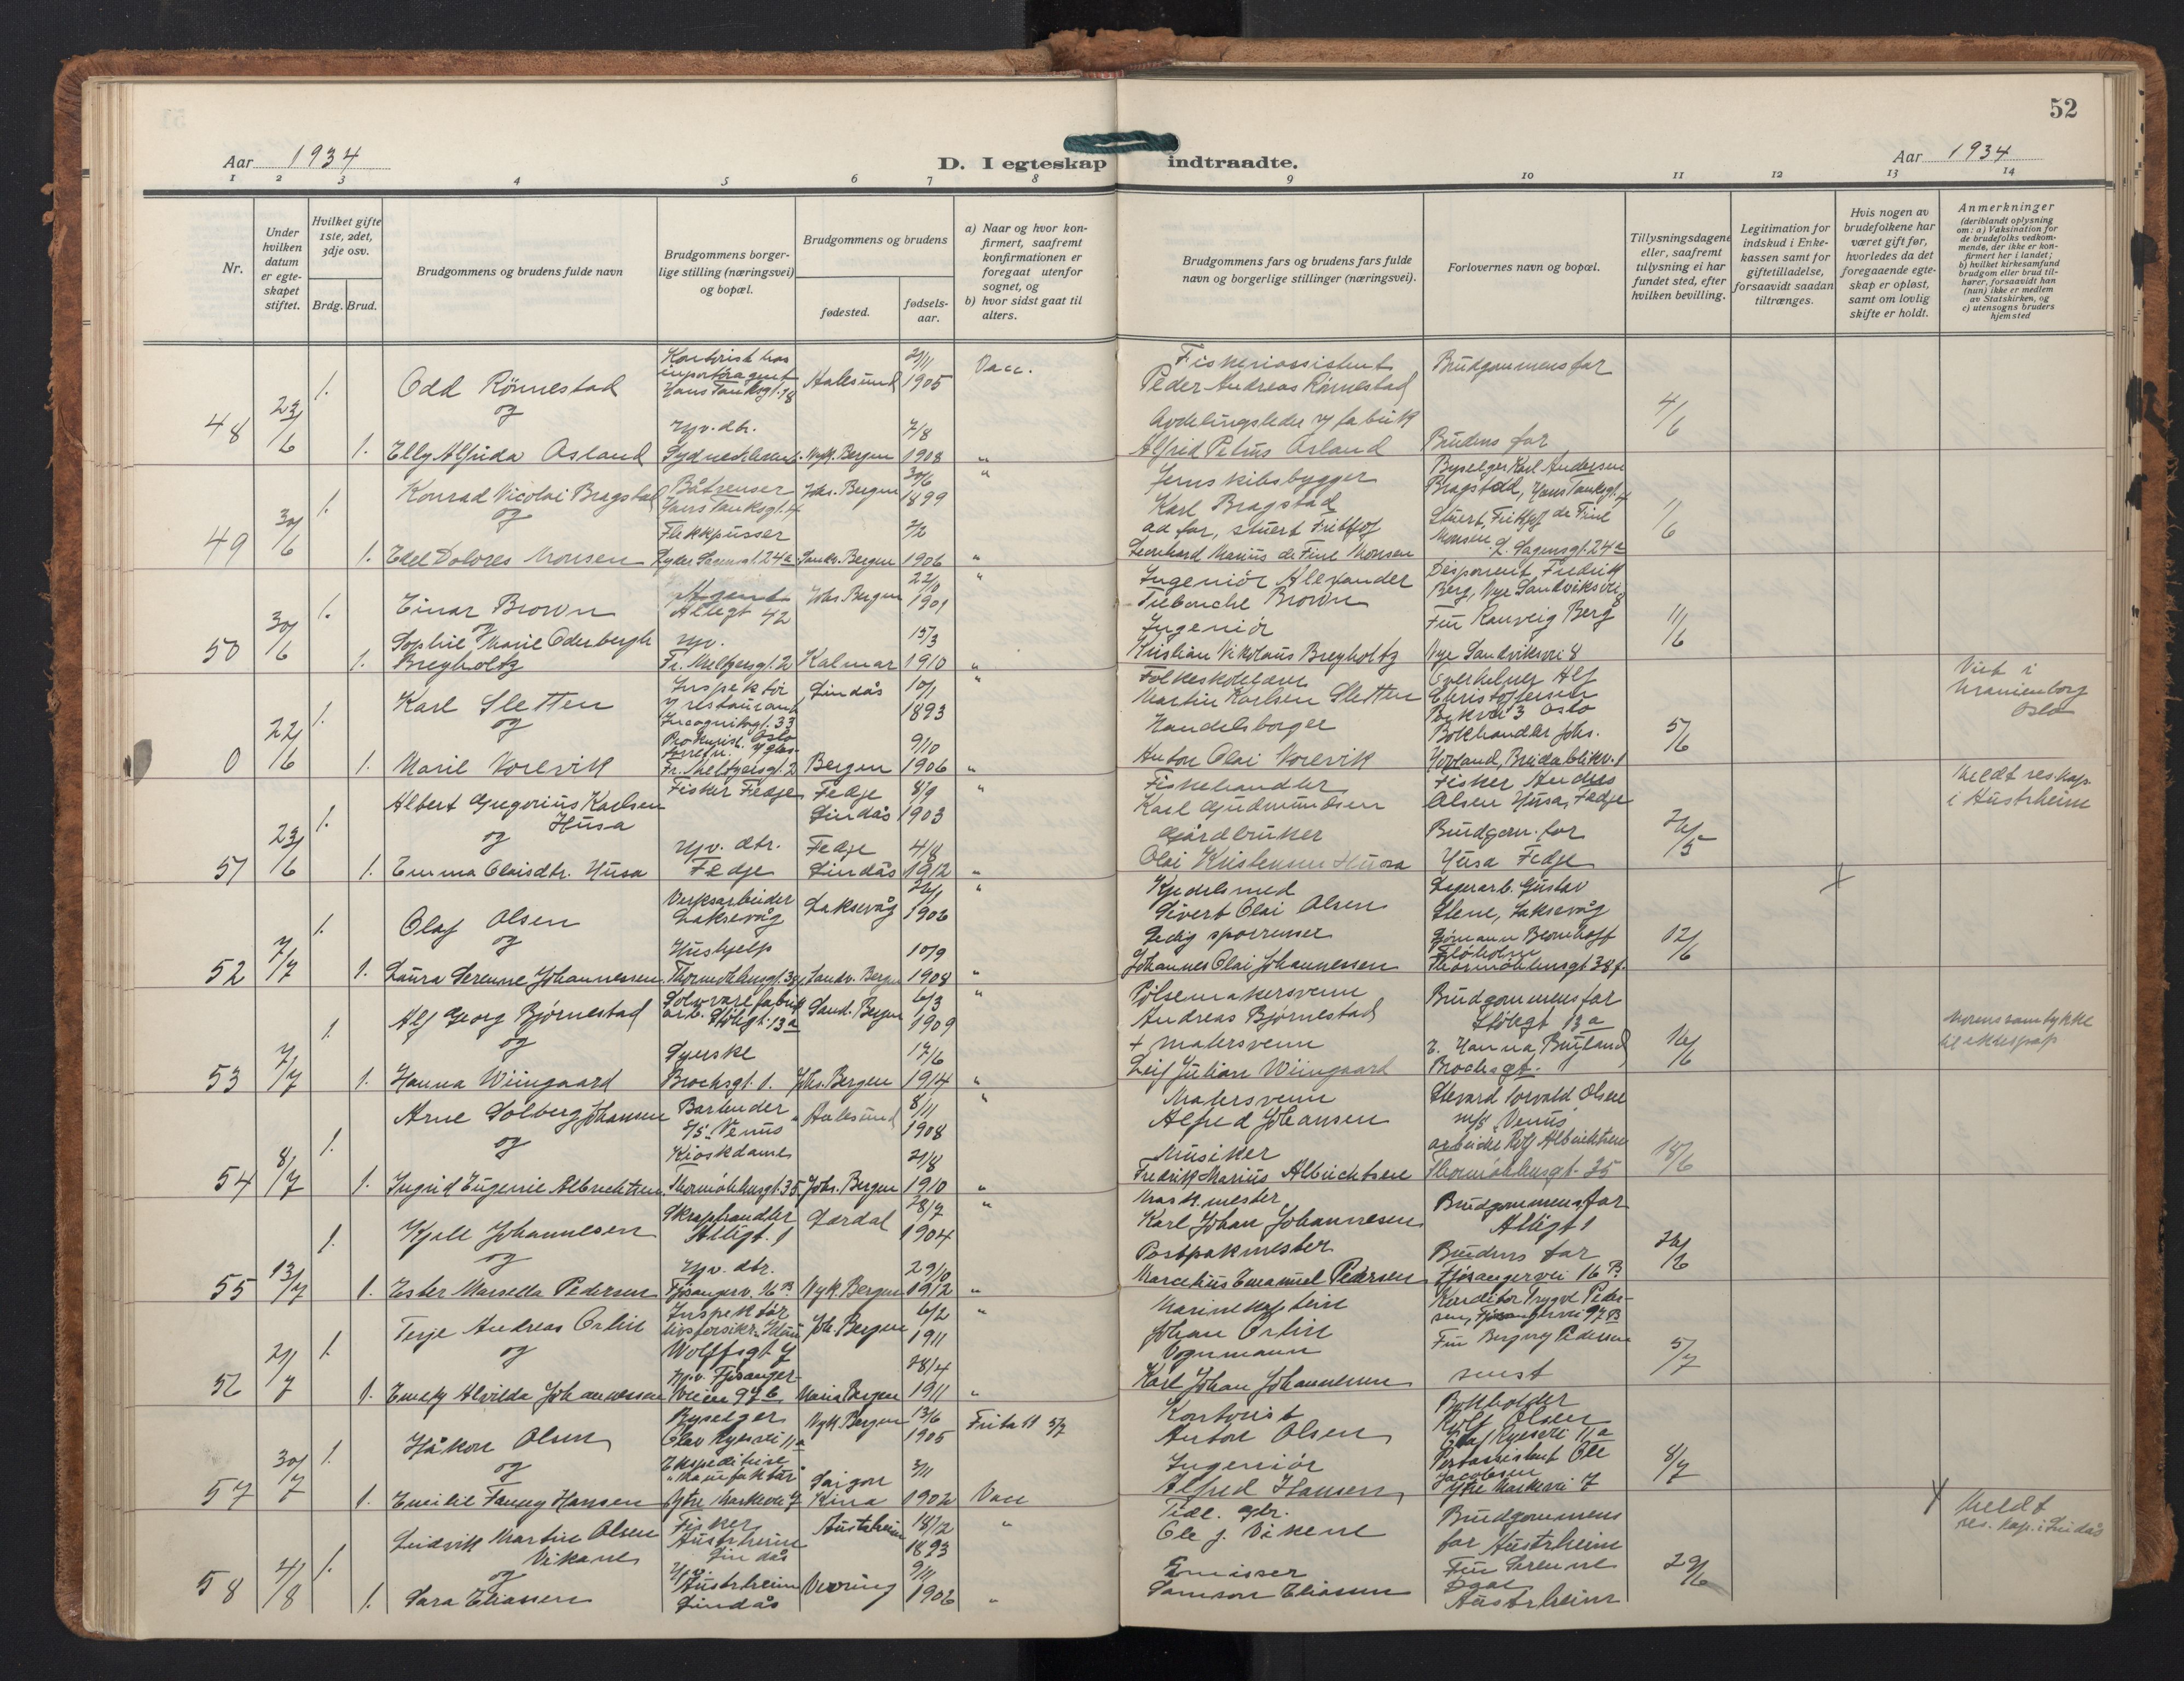 52
Aar 1934
D. I egteskap indtraadte.
Aar 1934
1 2 3 4 5 6 7 8 9 10 11 12 13 14
Nr.
Under hvilken datum er egteskapet stiftet.
Hvilket gifte 1ste, 2det, 3dje osv.
Brdg. Brud.
Brudgommens og brudens fulde navn
Brudgommens borgerlige stilling (næringsvei) og bopæl.
Brudgommens og brudens
fødested.
fødselsaar.
a) Naar og hvor konfirmert, saafremt konfirmationen er foregaat utenfor sognet, og
b) hvor sidst gaat til alters.
Brudgommens fars og brudens fars fulde navn og borgerlige stillinger (næringsvei).
Forlovernes navn og bopæl.
Tillysningsdagene eller, saafremt tillysning ei har fundet sted, efter hvilken bevilling.
Legitimation for indskud i Enkekassen samt for giftetilladelse, forsaavidt saadan tiltrænges.
Hvis nogen av brudefolkene har været gift før, hvorledes da det foregaaende egteskap er opløst, samt om lovlig skifte er holdt.
Anmerkninger
(deriblandt oplysning om: a) Vaksination for de brudefolks vedkommende, der ikke er konfirmert her i landet;
b) hvilket kirkesamfund brudgom eller brud tilhører, forsaavidt han (hun) ikke er medlem av Statskirken, og
c) utensogns bruders hjemsted
48 23/6
1. Odd Rönnestad
Kontorist hos
importöragent
Hans Tanksgt. 18
Aalesund 2/11 1905 Vacc.
Fiskeriassistent
Peder Andreas Rönnestad
Brudgommens far
og
1. Elly Alfrida Asland
Hjv. dtr.
Nyk. Bergen 7/8 1908 "
Avdelingsleder v/ fabrik
Alfrid Petrus Asland
Brudens far
4/6
49 30/6
1. Konrad Nicolai Bragstad
Båtrenser
Hans Tanksgt. 4
Johs. Bergen 30/6 1899 "
Jernskibsbygger
Karl Bragstad
Byselger Karl Andersen
Bragstad, Hans Tanksgt. 4
og
1. Edel Dolores Monsen
Flekkpusser
Lyder Sagensgt. 24a
Sandv. Bergen 2/2 1906 "
ad. far, stuert Fritthjof
Leonhard Marius de Fine Monsen
Stuert, Fritthjof de Fine
Monsen L. Sagensgt. 24a
11/6
50 30/6
1. Einar Brown
Agent
Allegt 42
Johs. Bergen 22/10 1901 "
Ingeniör Alexander
Brown
Disponent Fredrik
Berg, Nye Sandviksvei 8
og
1. Sophie Marie Oderbergh
Breyholtz
Hjv.
Fr. Meltzersgt. 2
Kalmar 15/3 1910 "
Ingeniör
Kristian Nikolaus Breyholtz
Fru Ranveig Berg
Nye Sandviksvei 8
11/6
0 22/6
1. Karl Sletten
Inspektör
v/ restaurant
Incognitogt. 33
Oslo
Lindås 10/1 1893 "
Folkeskolelærer
Martin Karlsen Sletten
Overkelner Alf
Christoffersen
3 Oslo
og
1. Marie Norevik
Prokurist
Fr. Meltzersgt. 2
Bergen 9/10 1906 "
Handelsborger
Anton Olai Norevik
Bokhandler Johs.
Hovland, Breidablikv. 1
5/6
Viet i
Uranienborg
Oslo
51 23/6
1. Albert Gregorius Karlsen
Husa
Fisker Fedje
Fedje
Lindås 8/9 1903 "
Fiskehandler
Karl Gudmundsen
Fisker Anders
Olsen Husa, Fedje
og
1. Emma Olaisdtr. Husa
Hjv. dtr.
Fedje
Fedje
Lindås 4/8 1912 "
Gårdbruker
Olai Kristensen Husa
Brudgom. far
Husa Fedje
26/5
Meldt res. kap.
i Austrheim
52 7/7
1. Olaf Olsen
Verksarbeider
Laksevåg
Laksevåg 26/1 1906 "
Kjedelsmed
Sivert Olai Olsen
Lagerarb. Gustav
Stene, Laksevåg
og
1. Laura Serenne Johannessen
Hushjelp
Thormøhlensgt. 38f
Sandv. Bergen 10/9 1908 "
Ledig sporrenser
Johannes Olai Johannessen
Sjömann
Thormøhlensgt. 38f.
12/6
53 7/7
1. Alf Georg Bjørnestad
Sölvvarefabrik
arb. Stölegt. 13a
Sand. Bergen 6/3 1909 "
Pølsemakersvenn
Andreas Bjørnestad
Brudgommens far
Stölegt 13a
og
1. Hanna Wiingaard
Syerske
Brochsgt. 1.
Johs. Bergen 17/6 1914 "
+ malersvenn
Leif Julian Wiingaard
E. Hanna Birkeland
Brochsgt. 1
16/6
Morens samtykke
til ekteskap
54 8/7
1. Arne Solberg Johansen
Bartender
S/S "Venus"
Aalesund 8/11 1908 "
Malersvenn
Alfred Johansen
Stevard Torvald Olsen
m/s Venus
og
1. Ingrid Eugenie Albrechtsen
Kioskdame
Thormöhlensgt. 35
Johs. Bergen 21/8 1910 "
Musiker
Fredrik Marius Albrechtsen
arbeider Rolf Albrechtsen
Thormöhlensgt. 35
18/6
55 13/7
1. Kjell Johannesen
Skraphandler
Alligt. 1
Lærdal 28/7 1904 "
Mask. mester
Karl Johan Johannesen
Brudgommens far
Alligt 1
og
1. Ester Marsella Pedersen
Hjv. dtr.
Fjösangerv. 16 B.
Nyk. Bergen 29/10 1912 "
Postpakmester
Marcelius Emanuel Pedersen
Brudens far
Fjösangervei 16 B.
26/6
56 21/7
1. Terje Andreas Orlin
Inspektör
livsforsikr. Idun
Wolffsgt 7
Joh. Bergen 6/2 1911 "
Marinekaptein
Johan Orlin
Konditor Trygve Pedersen, Fjösangervei 97B
og
1. Emely Alvilda Johannessen
Hjv. Fjösangerveien 97B
Maria Bergen 28/4 1911 "
Vognmann
Karl Johan Johannessen
Fru Bergny Pedersen
smst
5/7
57 30/7
1. Håkon Olsen
Byselger
Olav Ryesvei 11a
Nyk. Bergen 13/6 1905 Fritatt 5/7
Kontorist
Anton Olsen
Bokholder
Rolf Olsen
Olaf Ryesvei 11a
og
1. Emilie Fanny Hansen
Ekspeditrise
"Manufaktur"
Ytre Markevei 7
Saigon
Kina 3/11 1902 Vacc
Ingeniör
Alfred Hansen
Postassistent Ole
Jacobsen
Ytre Markevei 7
8/7
58 4/8
1. Ludvik Martin Olsen
Vikanes
Fisker
Austrheim
Lindås
Austrheim 18/12 1893 "
Tidl. gbr.
Ole J. Vikene
Brudgommens
far Austrheim
og
1. Sara Eliassen
Hjv.
Austrheim
Lindås
Vevring 9/11 1906 "
Emissær
Samson Eliassen
Fru Serenne
Austrheim
29/6
Meldt
res. kap. i Lindås